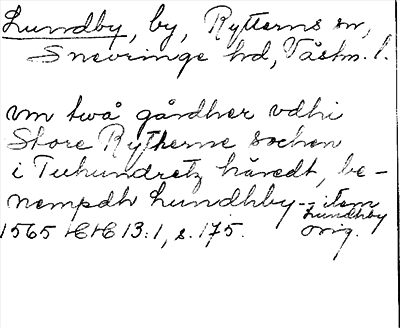 Lundby, by, Rytterns sn,
Snevringe hd, Västm. l.
vm två gårdher vdhi
Store Rytherne sochen
i Tuhundretz häredt, be-
nempdh Lundhby - item
Lundhby
1565 HH 13:1, s. 175. orig.